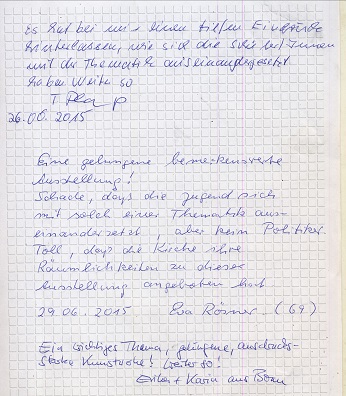 Es hat bei mir einen tiefen Eindruck
hinterlassen, wie sich die Schüler/-Innen
mit der Thematik auseinandergesetzt
haben Weiter so
26.06.2015
Eine gelungene bemerkenswerte
Ausstellung!
Schade, dass die Jugend sich
mit solch einer Thematik aus-
einandersetzt, aber kein Politiker.
Toll, dass die Kirche ihre
Räumlichkeiten zu dieser
Ausstellung angeboten hat
29.06.2015 Eva (69)
Ein wichtiges Thema, gelungene, ausdrucks-
starke Kunstwerke! Weiter so!
+ Karin aus Bonn